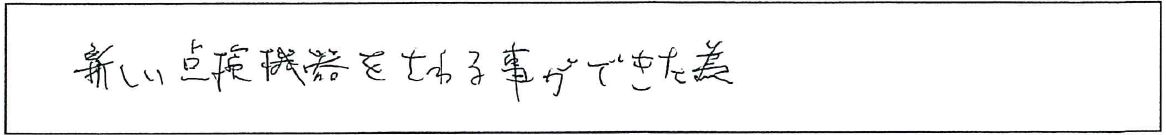 新しい点検機器をさわる事ができた為